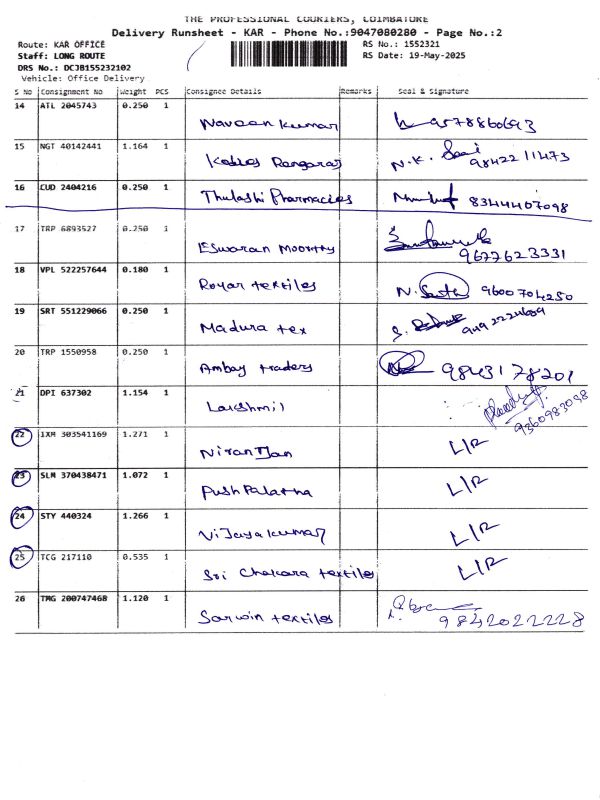 THE PROFESSIONAL COURIERS, COIMBATORE
Delivery Runsheet - KAR - Phone No.:9047080280 - Page No.:2
Route: KAR OFFICE RS No.: 1552321
Staff: LONG ROUTE RS Date: 19-May-2025
DRS No.: DCJB155232102
Vehicle: Office Delivery
S No Consignment No Weight PCS Consignee Details Remarks Seal & Signature
14 ATL 2045743 0.250 1 Naveen Kumar 9578860693
15 NGT 40142441 1.164 1 Rangaraj N.K. 9842211473
16 CUD 2404216 0.250 1 Thulashi Pharmacies 8344407098
17 TRP 6893527 0.250 1 Eswaran Moorthy 9677623331
18 VPL 522257644 0.180 1 Royar textiles N. 9600704250
19 SRT 551229066 0.250 1 Madura tex S.
20 TRP 1550958 0.250 1 Ambay traders 9843178201
21 DPI 637302 1.154 1 9360983098
22 IXM 303541169 1.271 1 Niranjan L/R
23 SLM 370438471 1.072 1 PushPalatha L/R
24 STY 440324 1.266 1 Vijayakumar L/R
25 TCG 217110 0.535 1 Sri Chakara textiles L/R
26 TMG 200747468 1.120 1 Sarwin textiles 9842022228